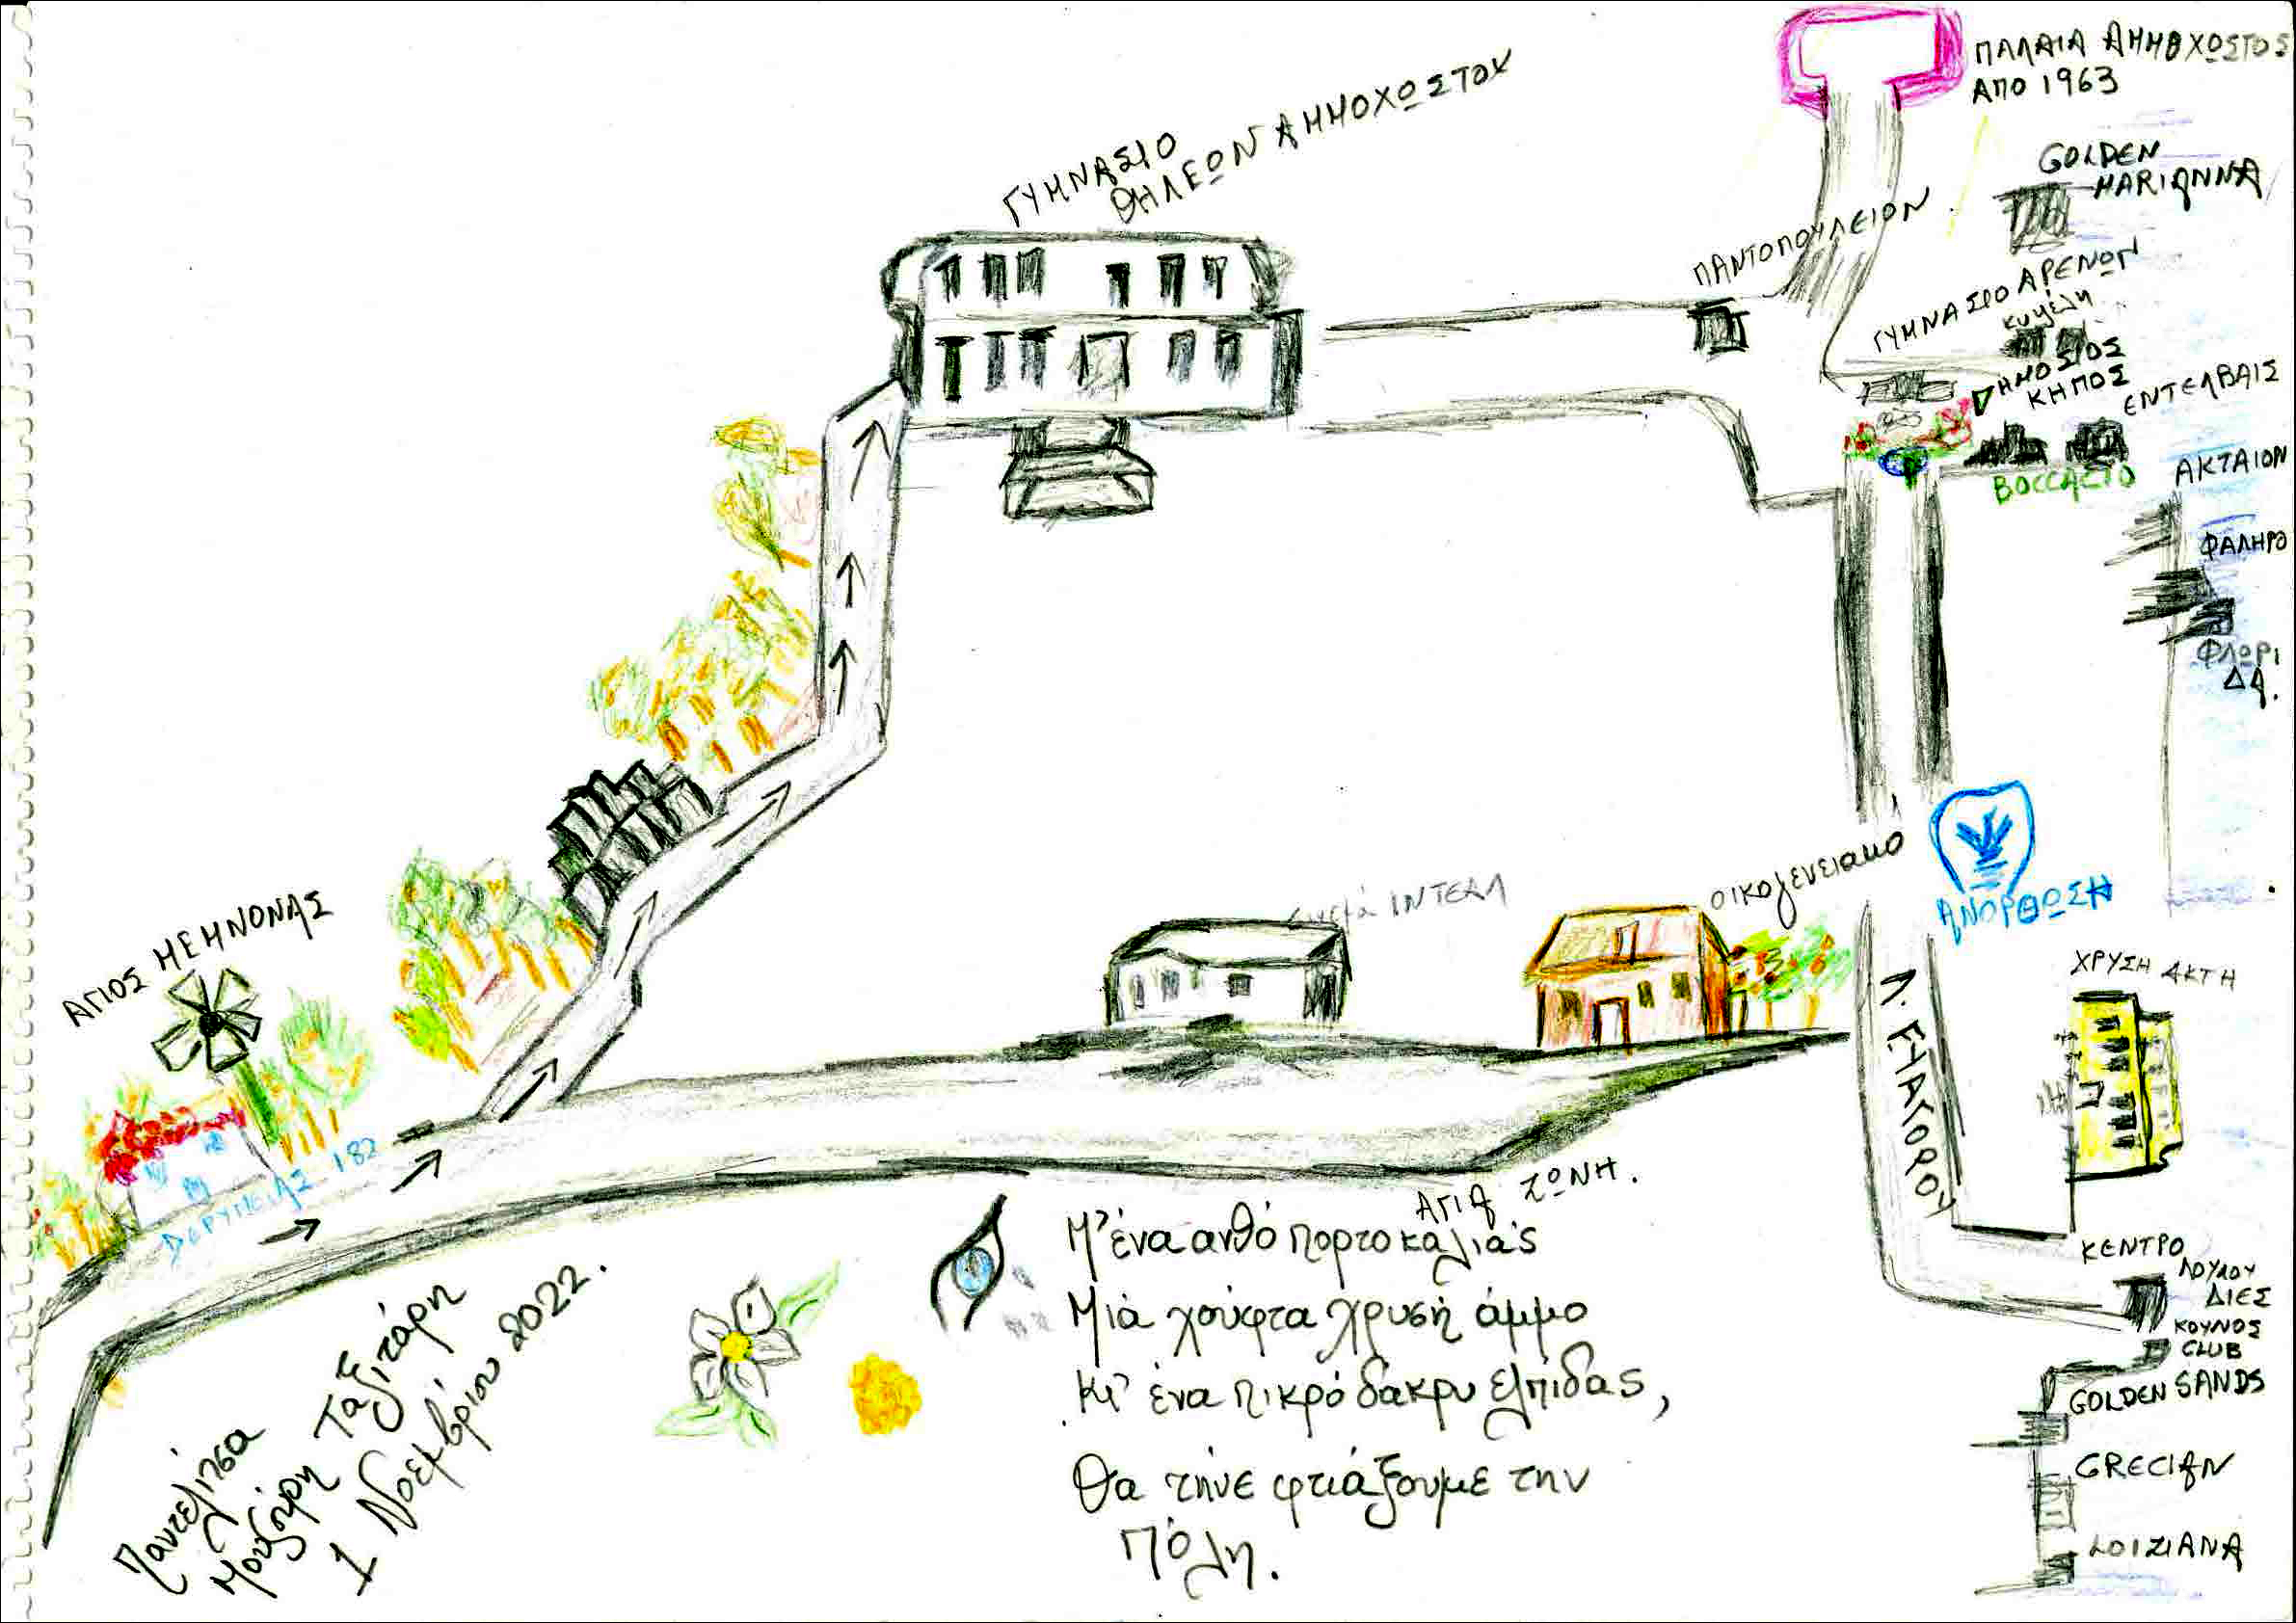 ΠΑΛΑΙΑ ΑΜΜΟΧΩΣΤΟΣ
ΑΠΟ 1963
GOLDEN
MARIANNA
ΓΥΜΝΑΣΙΟ
ΘΗΛΕΩΝ ΑΜΜΟΧΩΣΤΟΥ
ΠΑΝΤΟΠΟΥΛΕΙΟΝ
ΓΥΜΝΑΣΙΟ ΑΡΕΝΩΝ
κυψέλη
ΔΗΜΟΣΙΟΣ
ΚΗΠΟΣ
ΕΝΤΕΛΒΑΙΣ
BOCCACIO
ΑΚΤΑΙΟΝ
ΦΑΛΗΡΟ
ΦΛΩΡΙ
ΔΑ.
ΑΓΙΟΣ ΜΕΜΝΟΝΑΣ
ΙΝΤΕΑΛ
οικογενειακο
ΑΝΟΡΘΩΣΗ
ΧΡΥΣΗ ΑΚΤΗ
ΔΕΡΥΝΕΙΑΣ 182
Λ. ΕΥΑΓΟΡΟΥ
ΑΓΙΑ ΖΩΝΗ.
ΚΕΝΤΡΟ
ΛΟΥΛΟΥ
ΔΙΕΣ
ΚΟΥΝΟΣ
CLUB
GOLDEN SANDS
GRECIAN
LOIZIANA
Μ' ένα ανθό πορτοκαλιάς
Μιά χούφτα χρυσή άμμο
Κι' ένα πικρό δάκρυ ελπίδας,
Θα τήνε φτιάξουμε την
Πόλη.
Παντελίτσα
Μουζούρη Ταξιτάρη
1 Νοεμβρίου 2022.